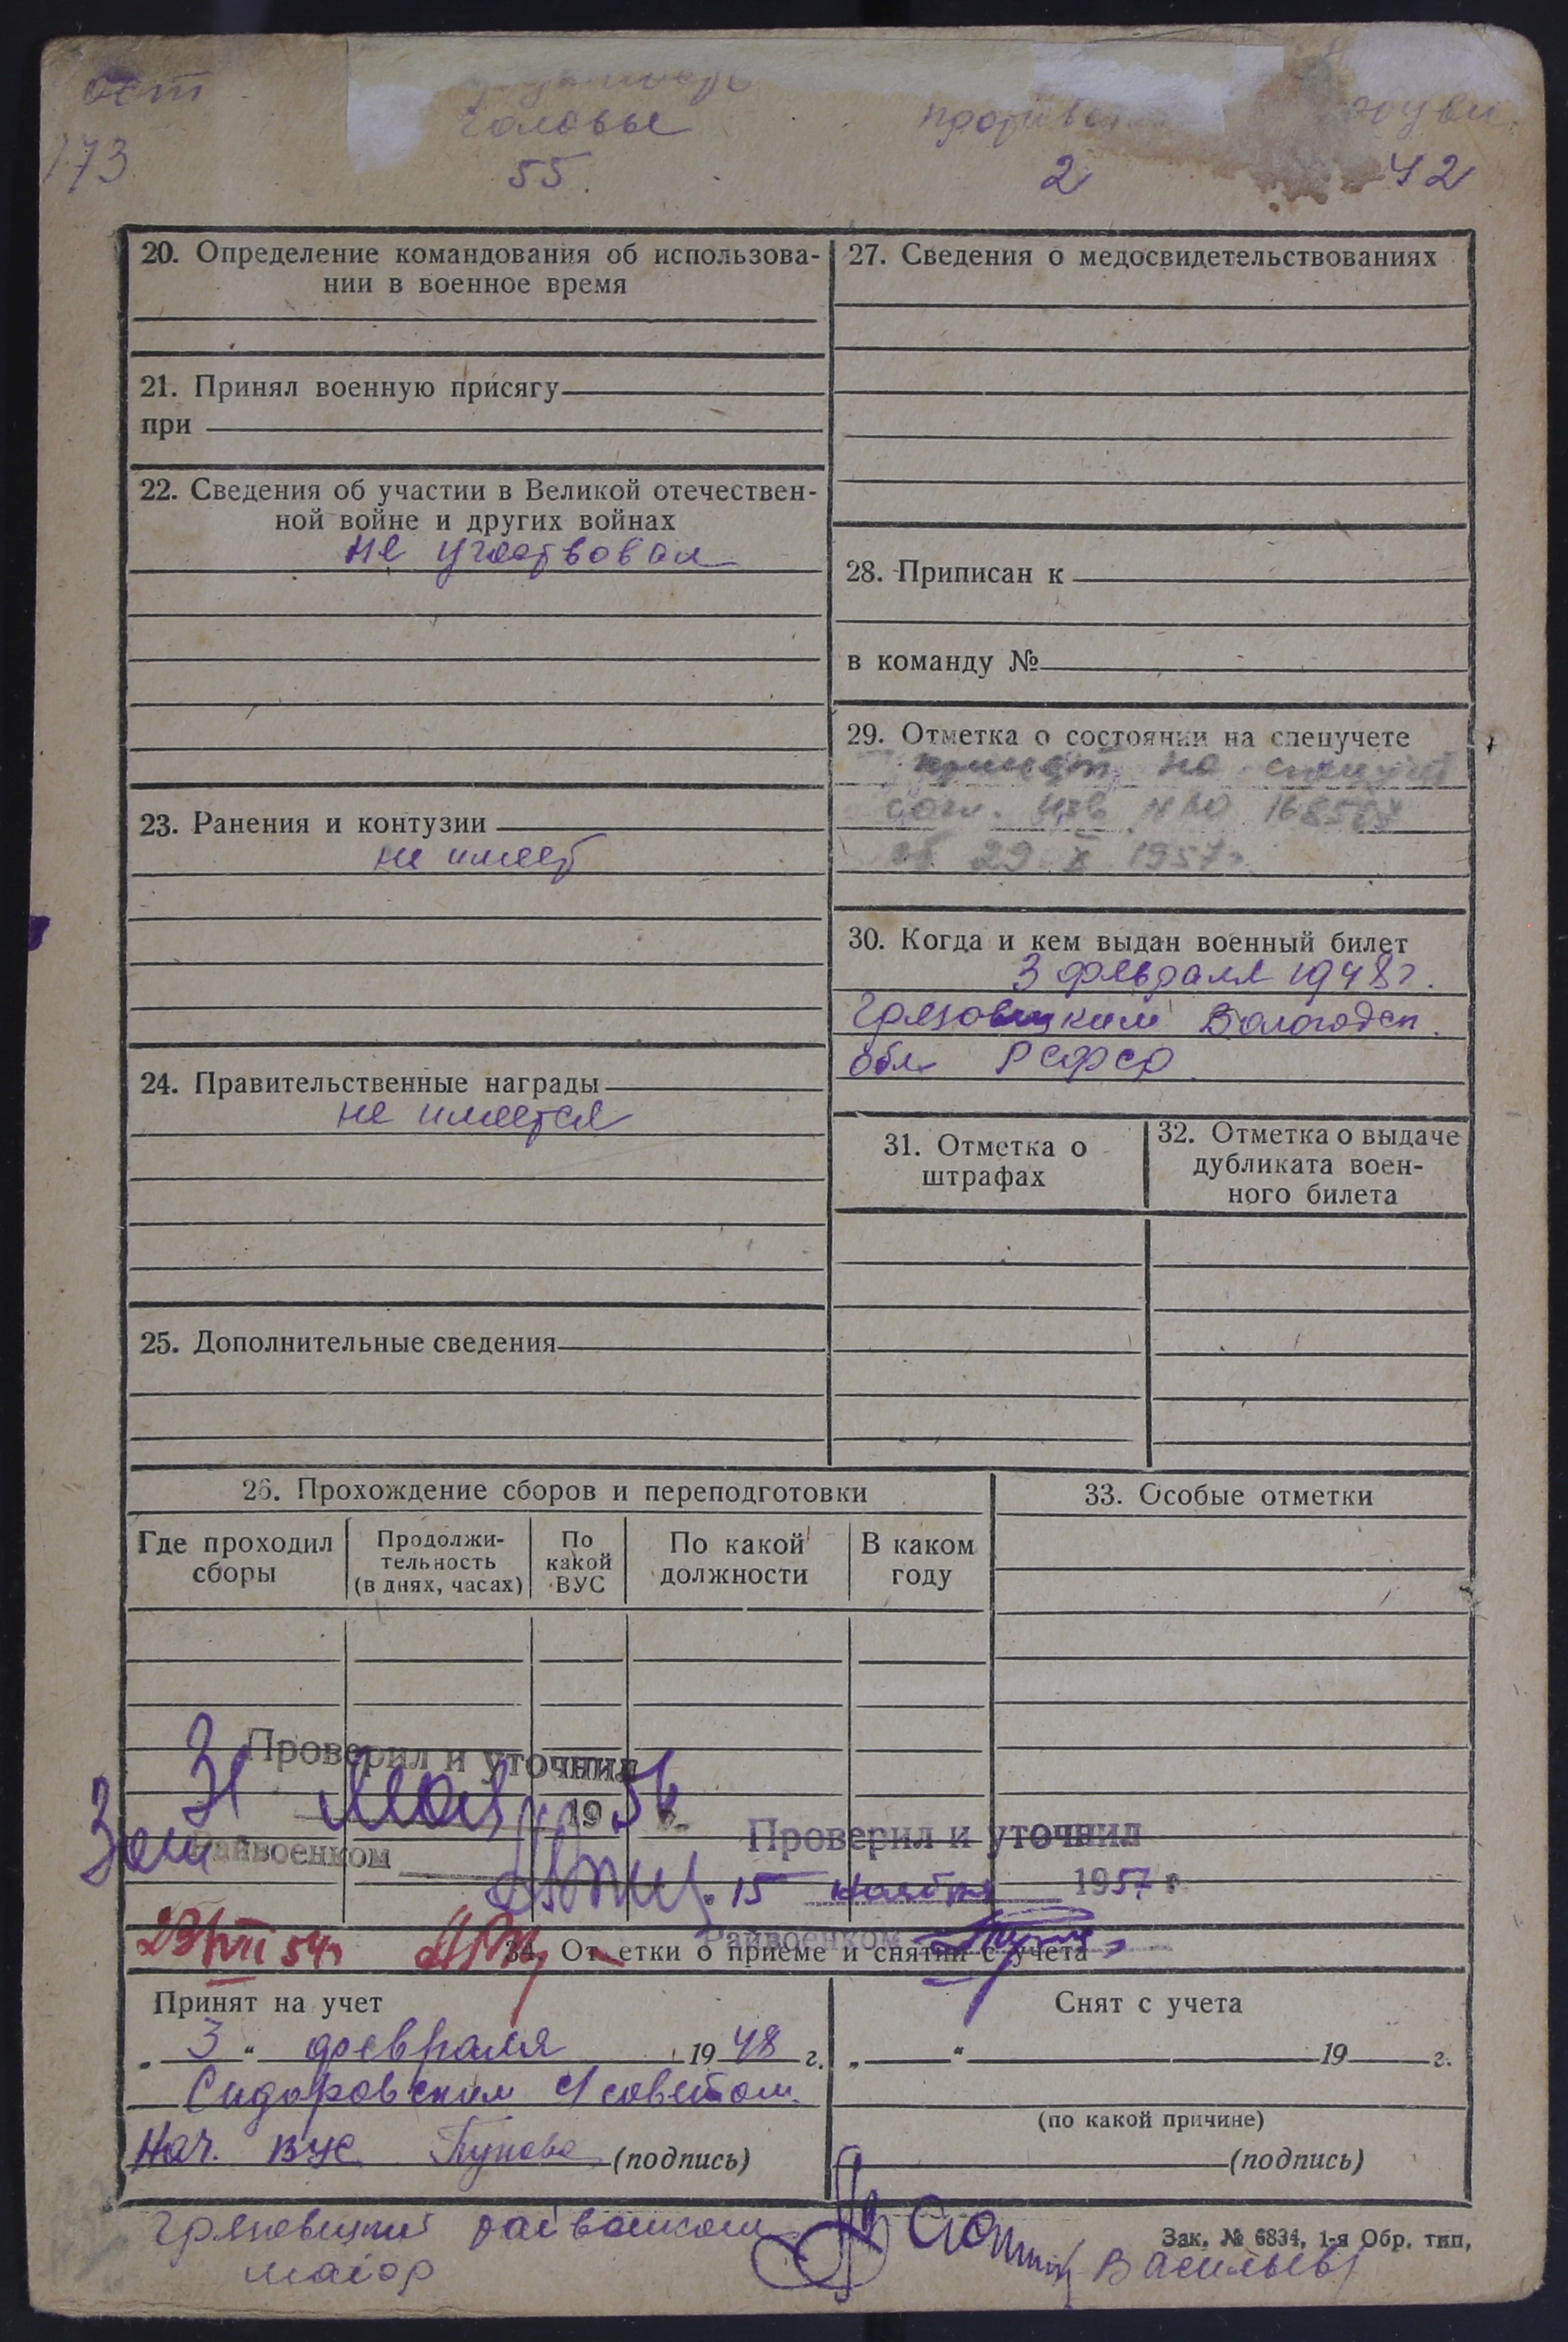 173
головы
55.
2
42
20. Определение командования об использова-
нии в военное время
21. Принял военную присягу
при
22. Сведения об участии в Великой отечествен-
ной войне и других войнах
не участвовал
23. Ранения и контузии
не имеет
24. Правительственные награды
не имеется
25. Дополнительные сведения
27. Сведения о медосвидетельствованиях
28. Приписан к
в команду №
29. Отметка о состоянии на спецучете
на
29 X 1957г.
30. Когда и кем выдан военный билет
3 февраля 1948г.
Грязовецким Вологодск.
обл РСФСР
31. Отметка о
штрафах
32. Отметка о выдаче
дубликата воен-
ного билета
26. Прохождение сборов и переподготовки
Где проходил
сборы
Продолжи-
тельность
(в днях, часах)
По
какой
ВУС
По какой
должности
В каком
году
33. Особые отметки
Проверил и уточнил
31 мая 1956 г.
Зам Райвоенком
Проверил и уточнил
15 ноября 1957 г
Райвоенком
23/VII 54г
34. Отметки о приеме и снятии с учета
Принят на учет
„ 3 “ февраля 1948 г.
Сидоровским с/советом.
Нач. ВУС (подпись)
Снят с учета
„ “ 19 г.
(по какой причине)
(подпись)
Грязовецкий райвоенком
майор
Васильев
Зак. № 6834, 1-я Обр. тип,